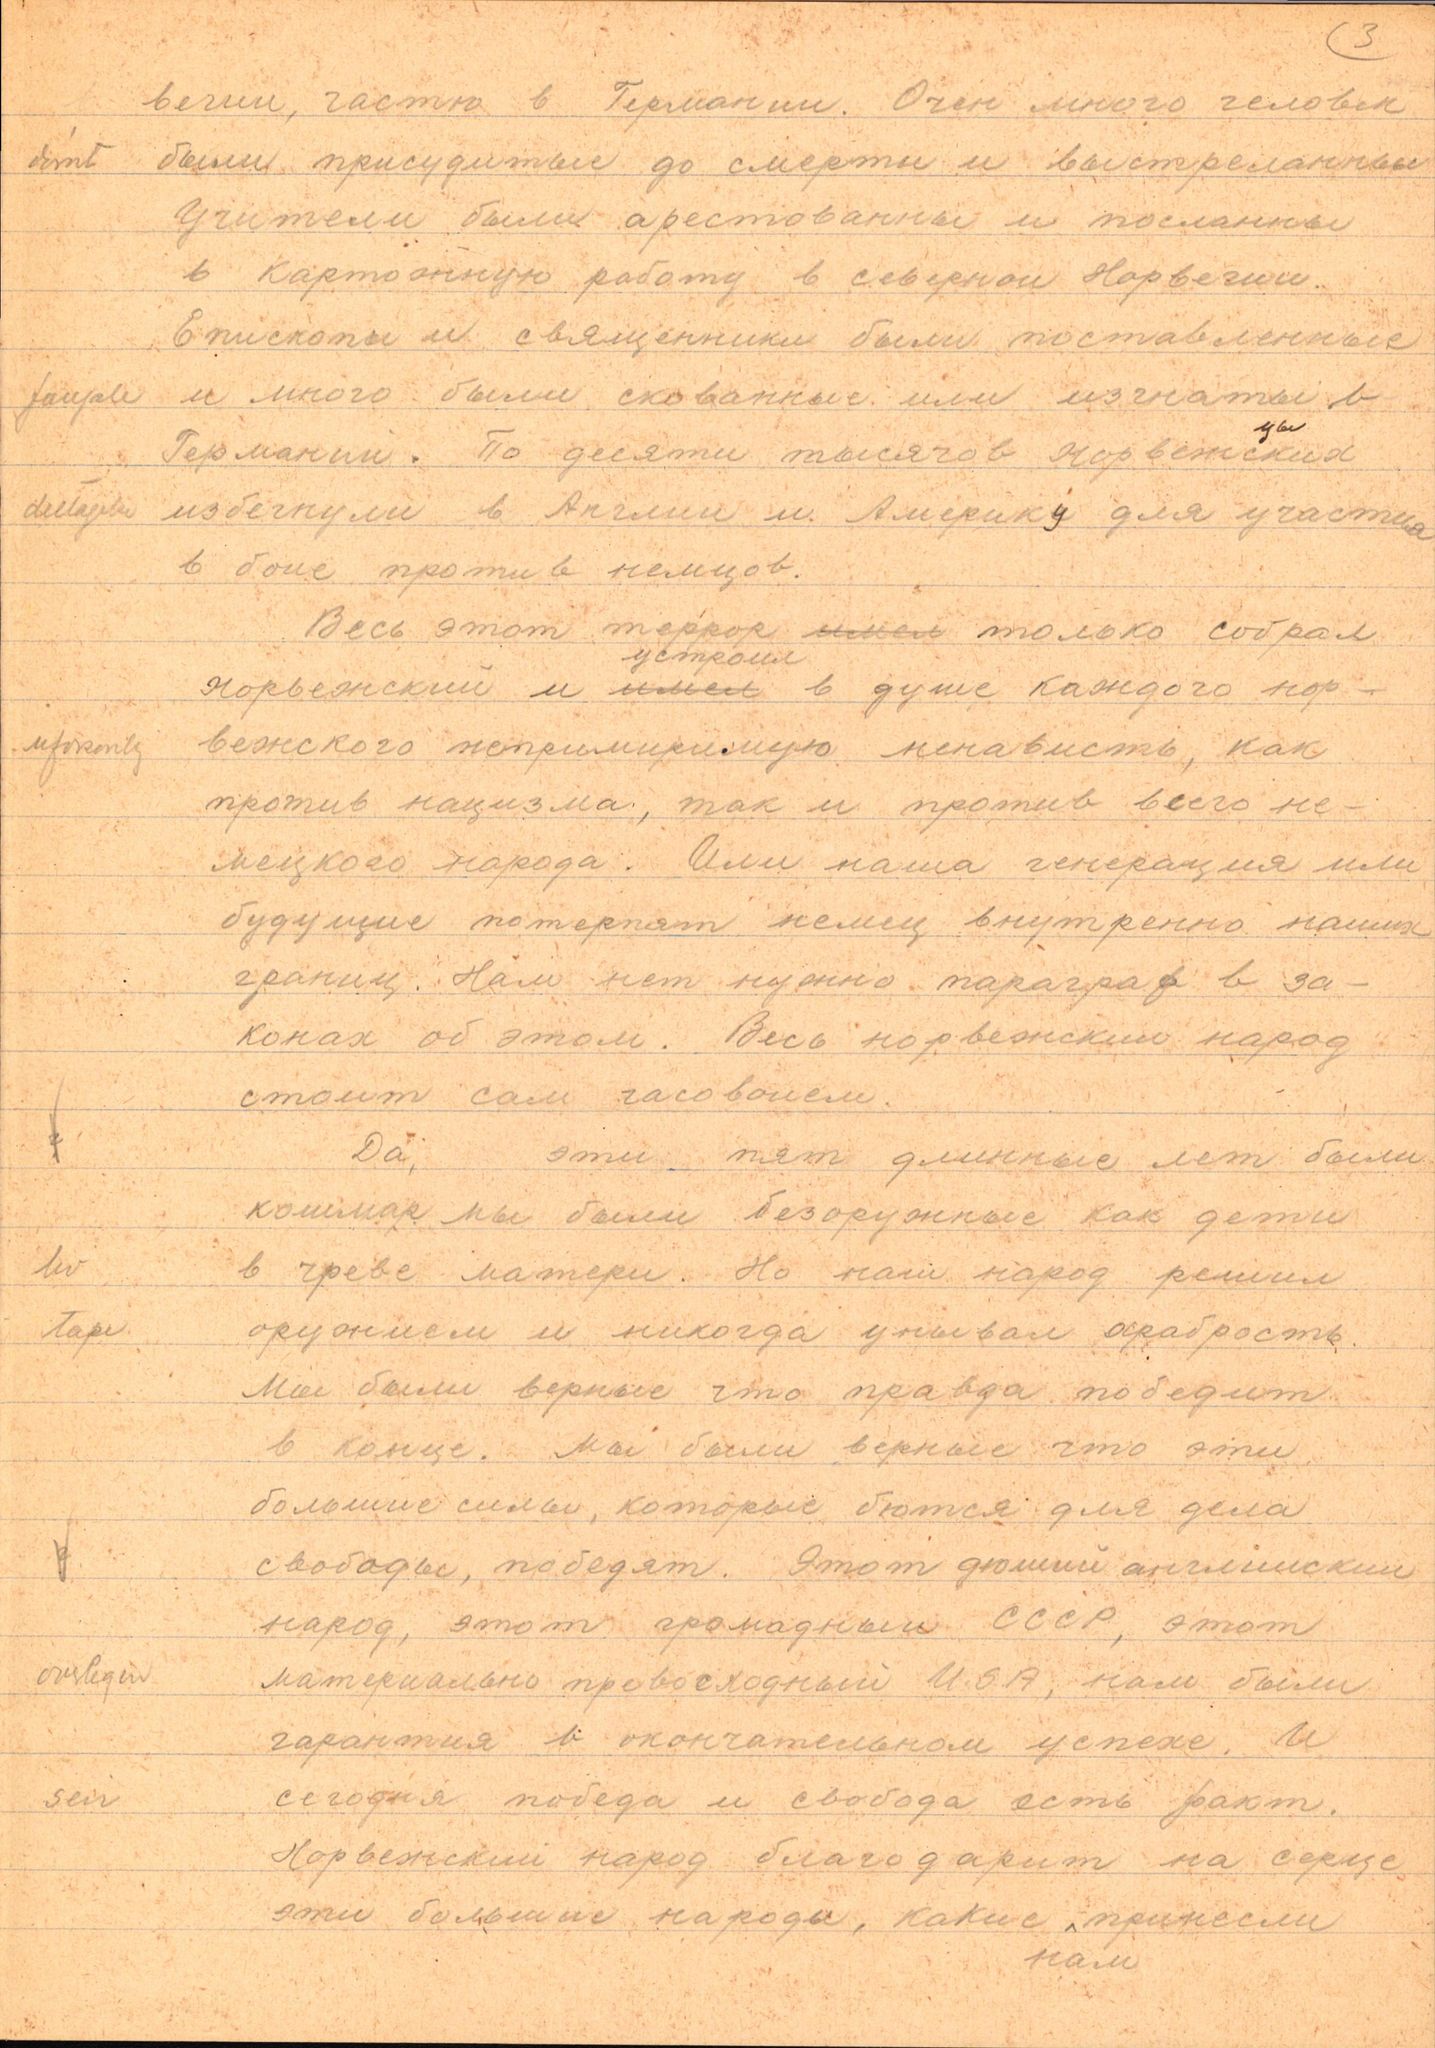 3
вегии, частю в Германии. Очен много человек
dömt были присудитые до смерти и выстреланные
Учители были арестованны и посланны
в картожную работу в севернои Норвегии.
Епископы и священники были поставленные
и много были скованные или изгнаты в
цы
Германий. По десяти тысячов норвежских
избегнули в Англии и Америку для участиа
в боие против немцов.
Весь этот террор имел только собрал
устроил
норвежский и имел в душе каждого нор-
uforsonlig вежского непримиримую ненависть, как
против нацизма, так и против всего не-
мецкого народа. Или наша генерация или
будущие потерпят немец внутренно наших
границ. Нам нет нужно параграф в за-
конах об этом. Весь норвежскии народ
стоит сам часовоием.
Да, эти пят длинные лет были
кошмар мы были безоружные как дети
liv в чреве матери. Но наш народ решил
tape оружием и никогда унывал храбрость.
Мы были верные что правда победит
в конце. Мы были верные что эти
большие силы, которые бются для дела
свободы, победят. Этот дюжий английскии
народ, этот громадныи СССР, этот
overlegen материально превосходный U.S.A, нам были
гарантия в окончательном успехе. И
seir сегодня победа и свобода есть факт.
Норвежскии народ благодарит на серце
эти большие народы, какие принесли
нам